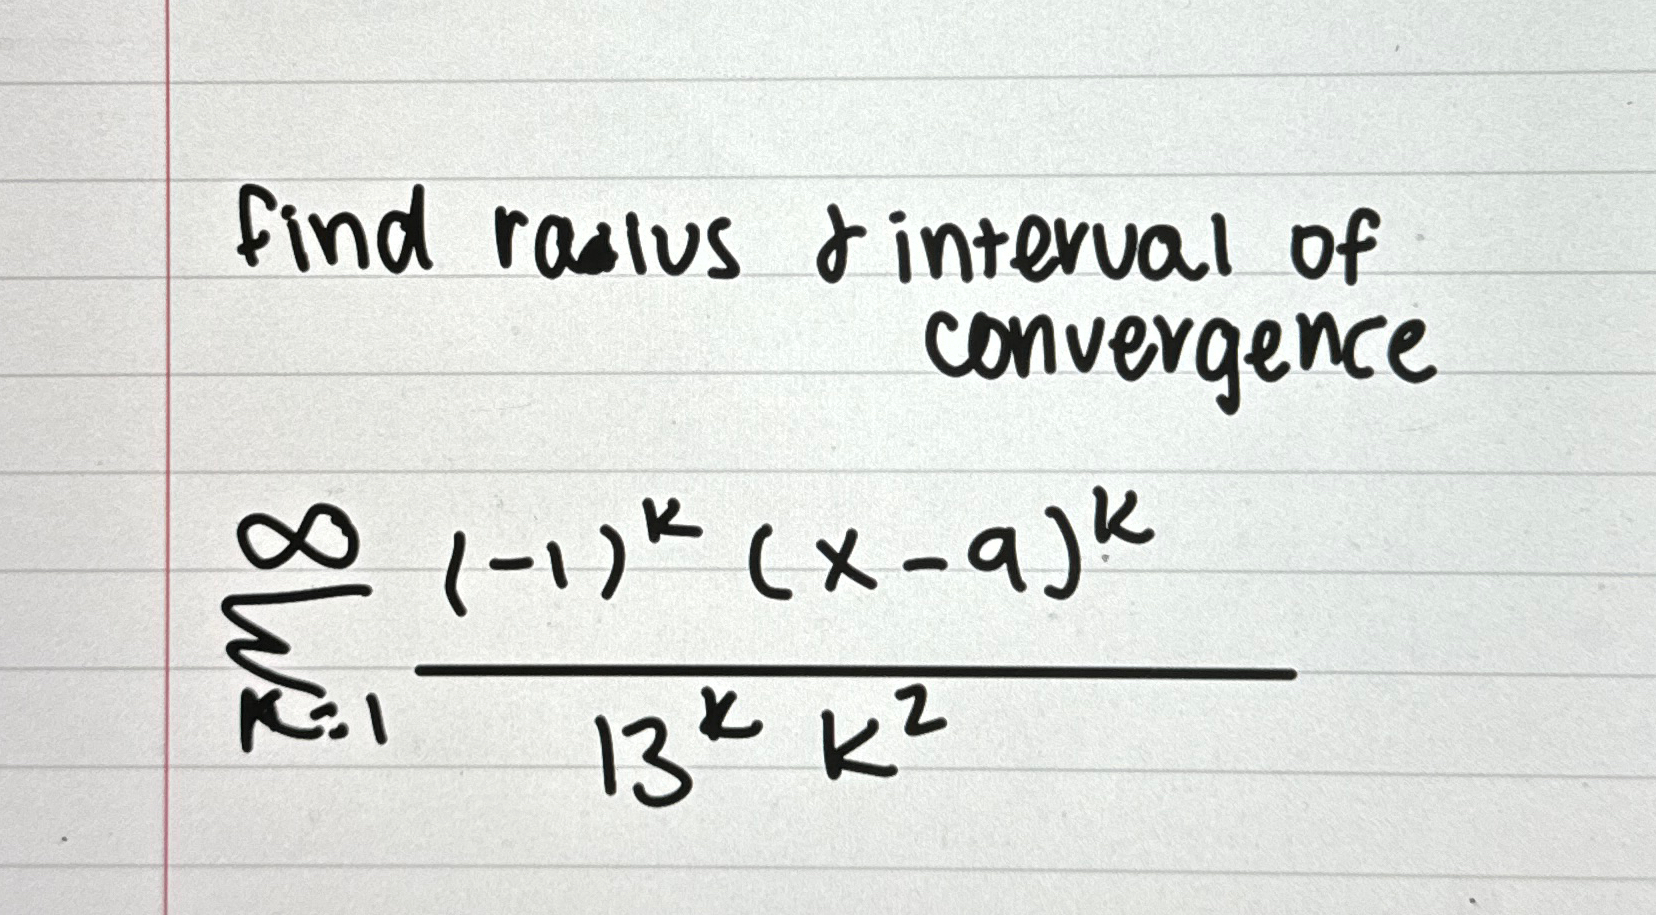 find radius & interval of
convergence
∞ (-1)^k (x-9)^k
Σ
k=1 13^k k^2